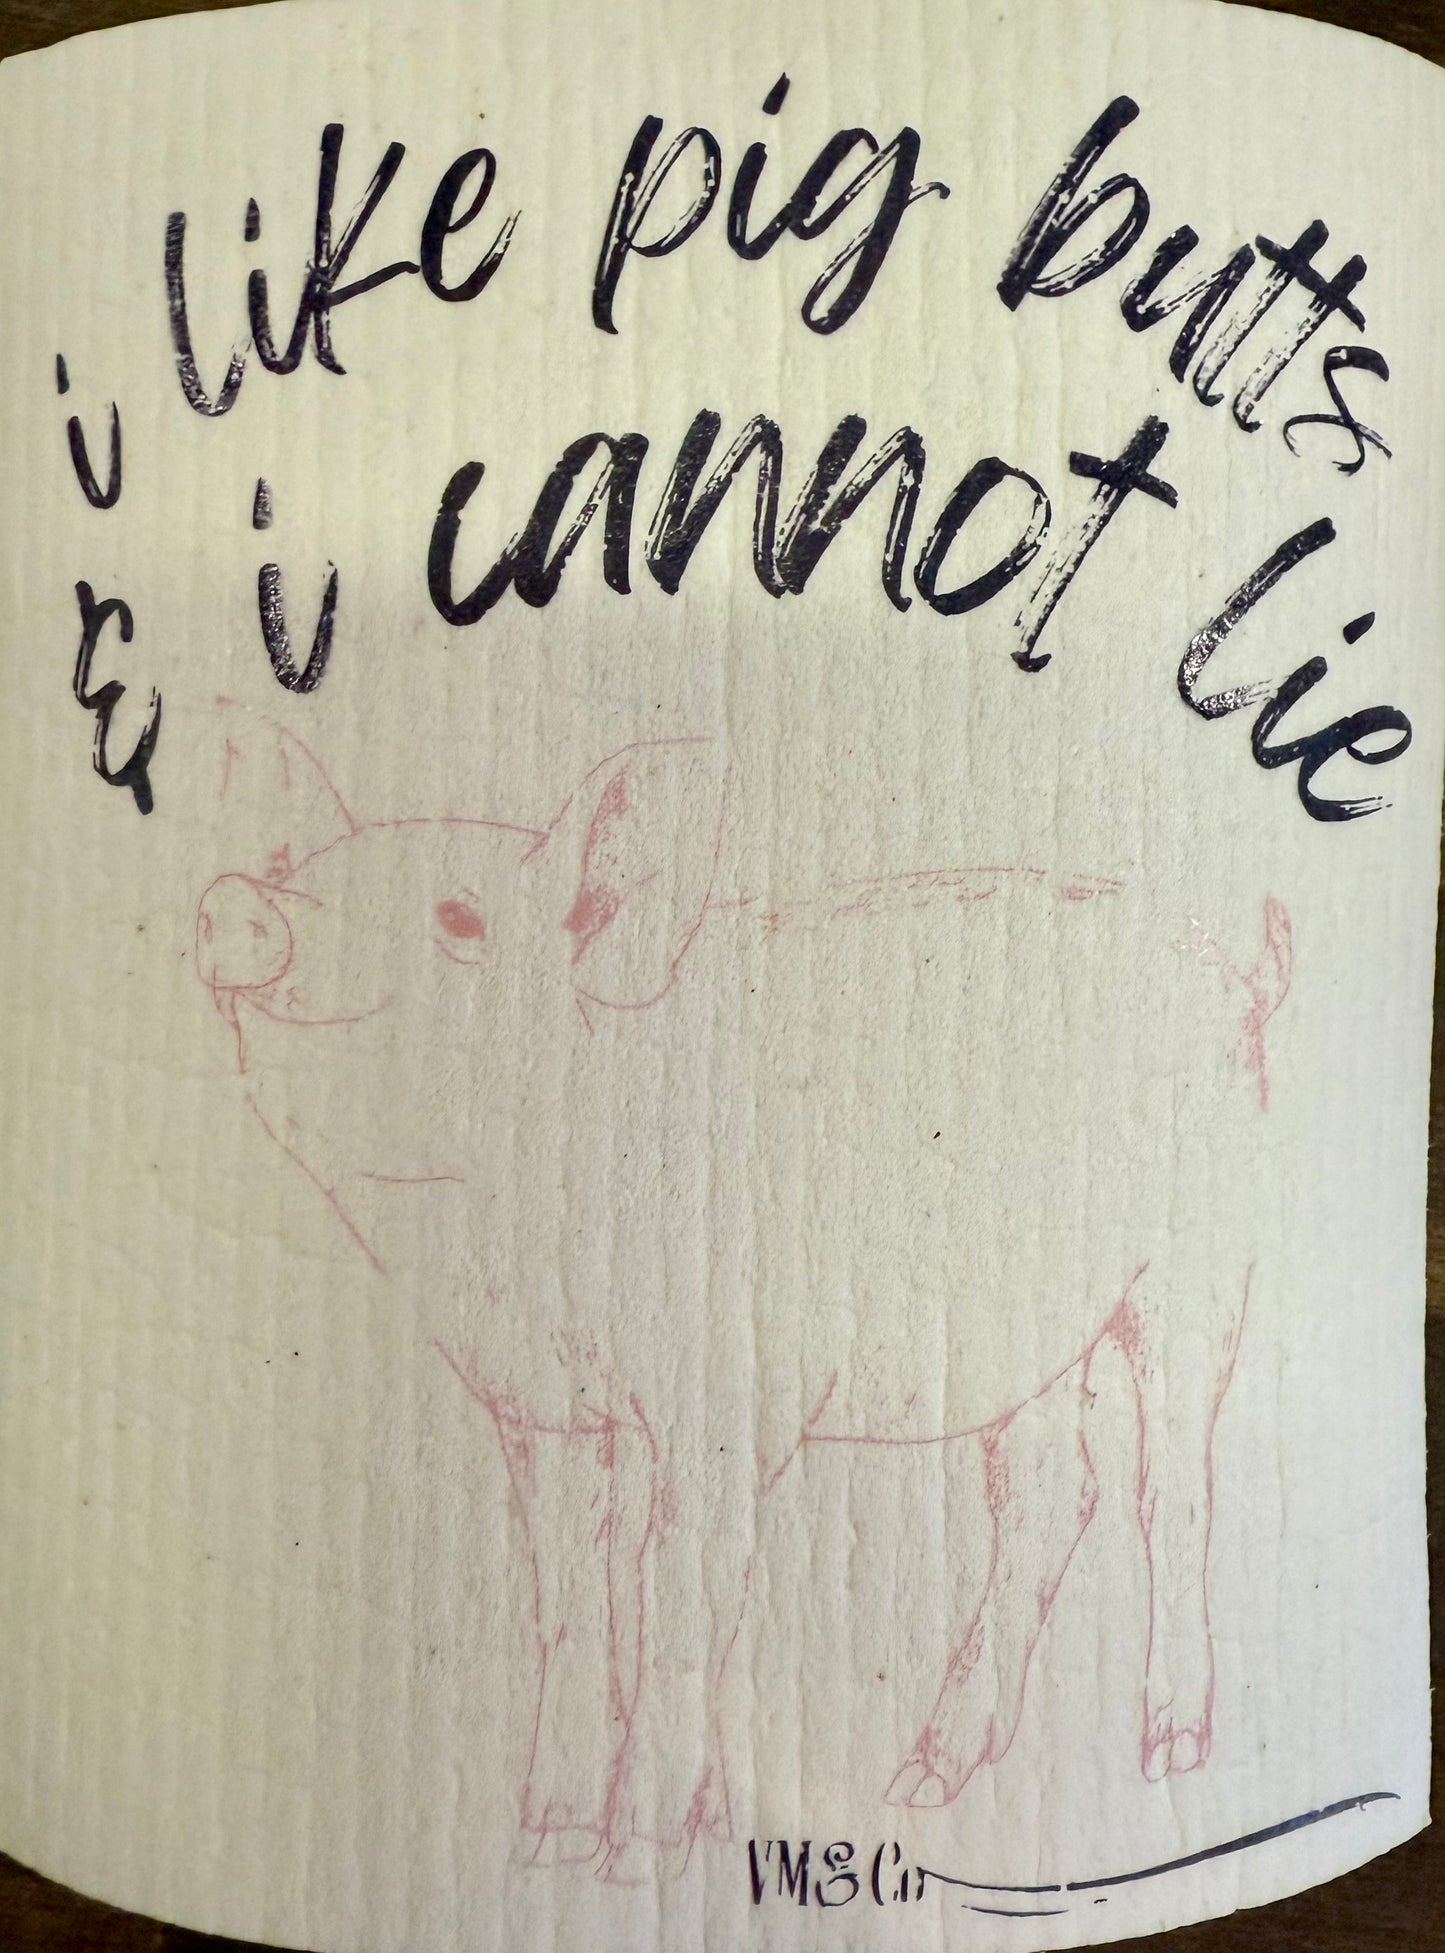 i like pig butts
& i cannot lie
VM & Co